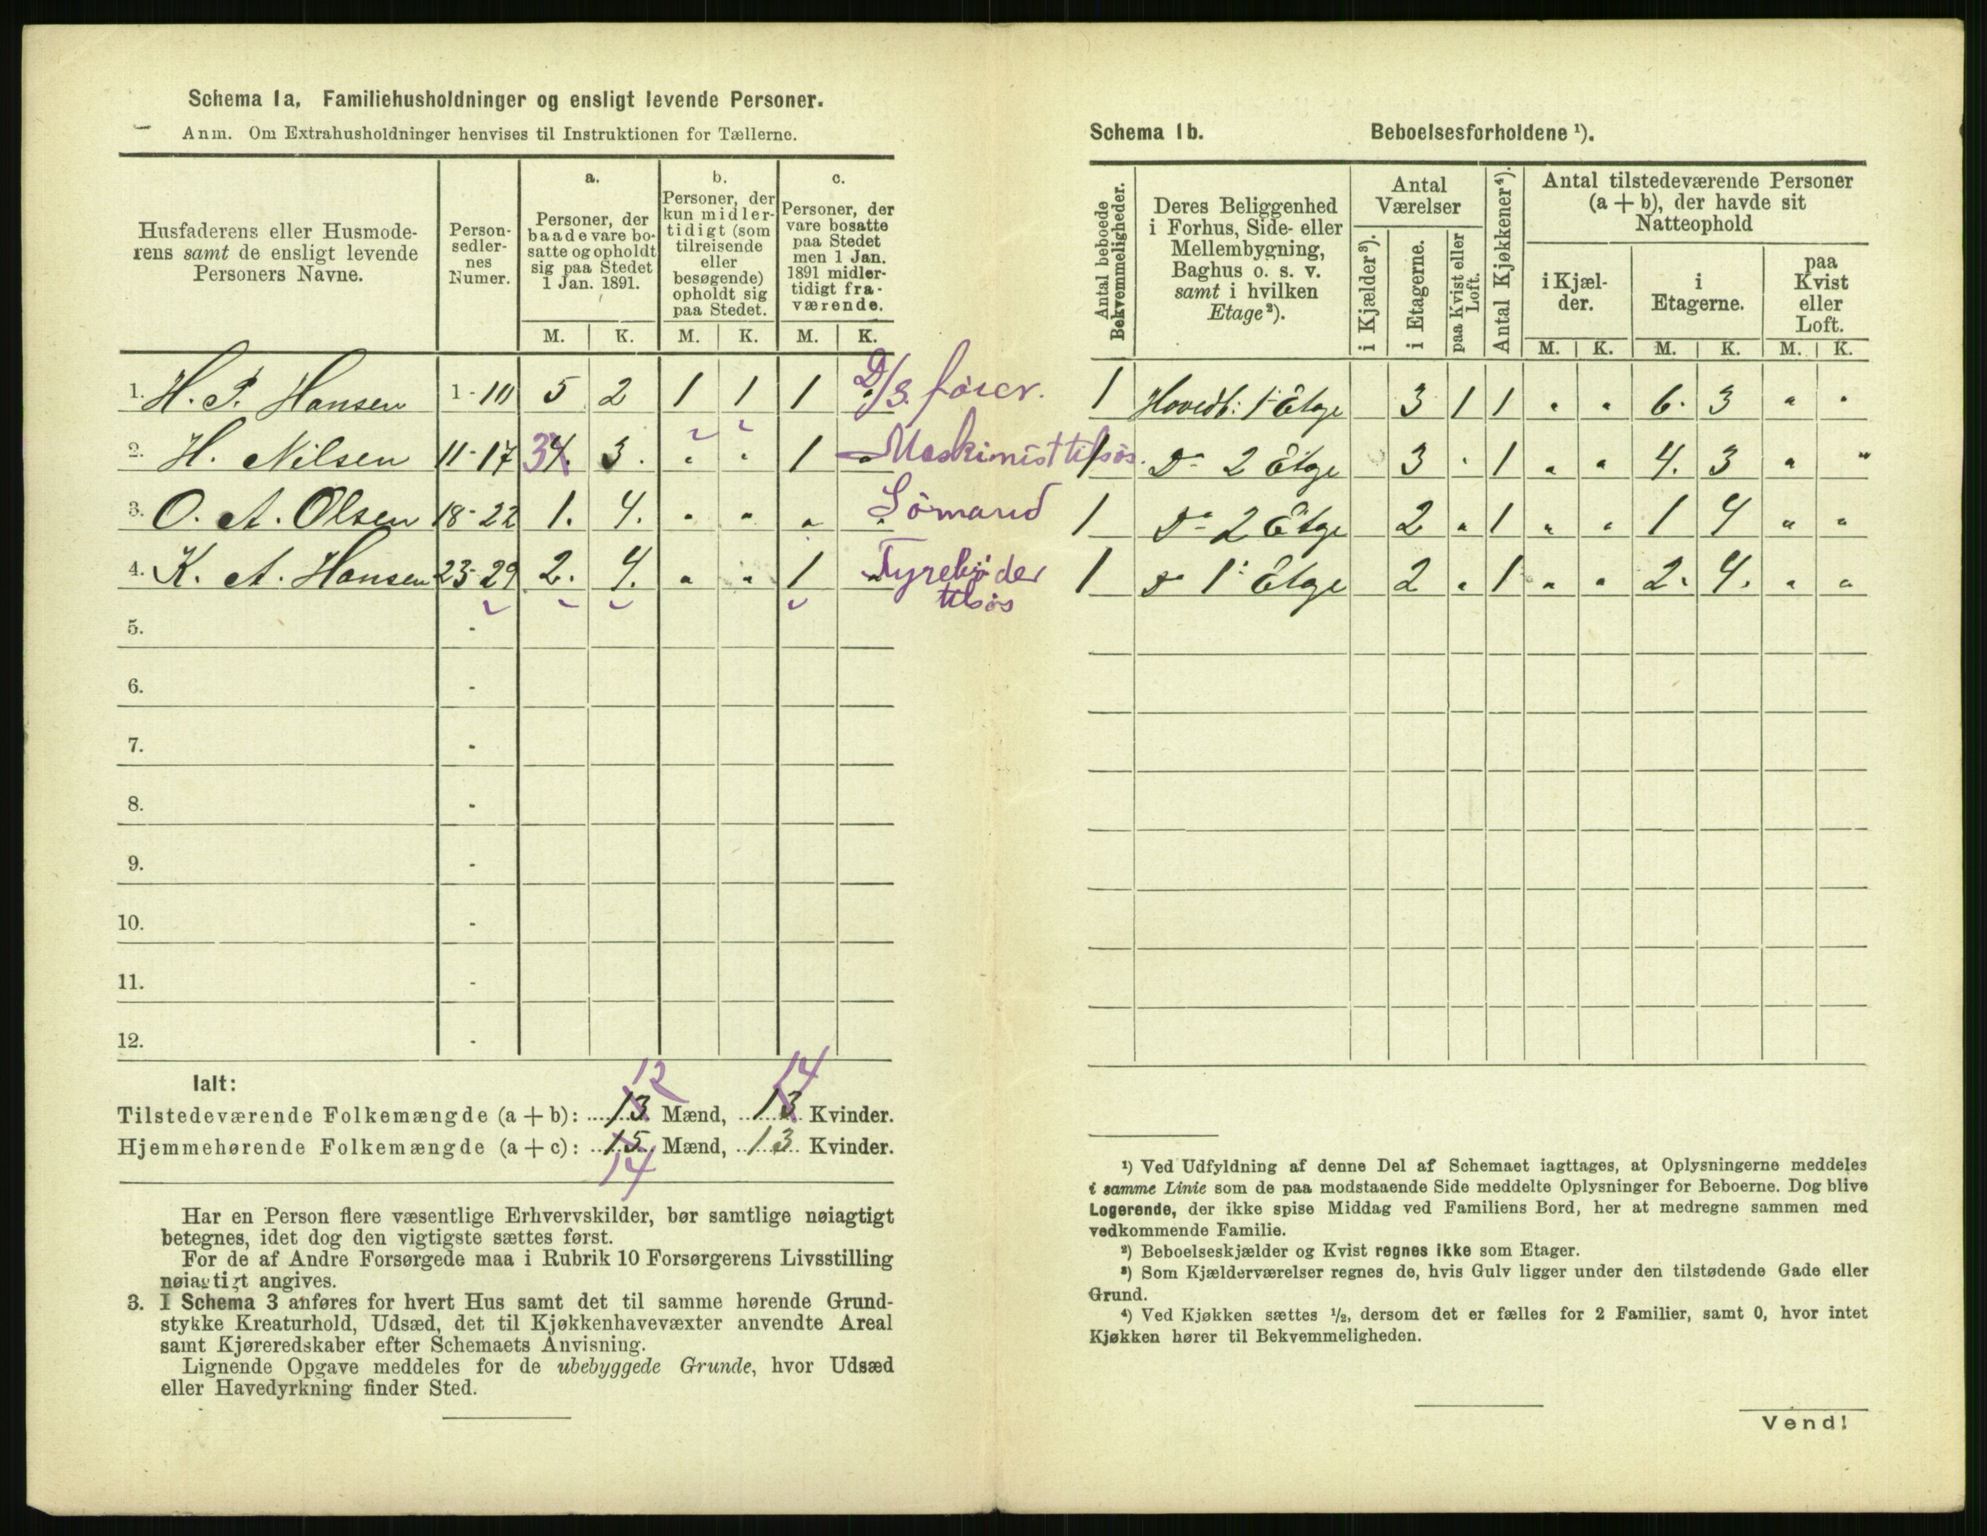 Schema 1a. Familiehusholdninger og ensligt levende Personer.
Anm. Om Extrahusholdninger henvises til Instruktionen for Tællerne.
Husfaderens eller Husmoderens samt de ensligt levende Personers Navne.
Person-sedler-nes Numer.
a.
Personer, der baade vare bosatte og opholdt sig paa Stedet 1 Jan. 1891.
b.
Personer, der kun midlertidigt (som tilreisende eller besøgende) opholdt sig paa Stedet.
c.
Personer, der vare bosatte paa Stedet men 1 Jan. 1891 midlertidigt fraværende.
M. K. M. K. M. K.
1. H. P. Hansen 1-10 5 2 1 1 1 D/S. fører.
2. H. Nilsen 11-17 3 4. 3. " " 1 " Maskinist tilsøs.
3. O. A. Olsen 18-22 1. 4. " " " " Sømand
4. K. A. Hansen 23-29 2. 4. " " 1 " Fyrebøder
tilsøs
5. -
6. -
7. -
8. -
9. -
10. -
11. -
12. -
Ialt:
12 14
Tilstedeværende Folkemængde (a + b): 13 Mænd, 13 Kvinder.
Hjemmehørende Folkemængde (a + c): 15 Mænd, 13 Kvinder.
14
Har en Person flere væsentlige Erhvervskilder, bør samtlige nøiagtigt
betegnes, idet dog den vigtigste sættes først.
For de af Andre Forsørgede maa i Rubrik 10 Forsørgerens Livsstilling
nøiagtigt angives.
3. I Schema 3 anføres for hvert Hus samt det til samme hørende Grund-
stykke Kreaturhold, Udsæd, det til Kjøkkenhavevæxter anvendte Areal
samt Kjøreredskaber efter Schemaets Anvisning.
Lignende Opgave meddeles for de ubebyggede Grunde, hvor Udsæd
eller Havedyrkning finder Sted.
Schema 1b. Beboelsesforholdene ¹).
Antal beboede Bekvemmeligheder.
Deres Beliggenhed i Forhus, Side- eller Mellembygning, Baghus o. s. v. samt i hvilken Etage²).
Antal Værelser
i Kjælder³).
i Etagerne.
paa Kvist eller Loft.
Antal Kjøkkener⁴).
Antal tilstedeværende Personer (a + b), der havde sit Natteophold
i Kjælder.
i Etagerne.
paa Kvist eller Loft.
M. K. M. K. M. K.
1 Hovedb: 1 Etage 3 1 1 " " 6. 3 " "
1 Do 2 Etage 3 . 1 " " 4. 3 " "
1 Do 2 Etage 2 " 1 " " 1 4 " "
1 Do 1 Etage 2 " 1 " " 2. 4. " "
¹) Ved Udfyldning af denne Del af Schemaet iagttages, at Oplysningerne meddeles
i samme Linie som de paa modstaaende Side meddelte Oplysninger for Beboerne. Dog blive
Logerende, der ikke spise Middag ved Familiens Bord, her at medregne sammen med
vedkommende Familie.
²) Beboelseskjælder og Kvist regnes ikke som Etager.
³) Som Kjælderværelser regnes de, hvis Gulv ligger under den tilstødende Gade eller
Grund.
⁴) Ved Kjøkken sættes ½, dersom det er fælles for 2 Familier, samt 0, hvor intet
Kjøkken hører til Bekvemmeligheden.
Vend!